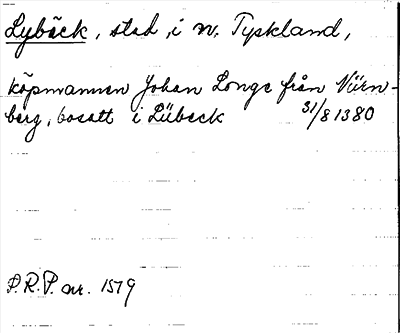 Lybäck, stad i n. Tyskland,
köpmannen Johan Longe från Nürn-
berg, bosatt i Lübeck 31/8 1380
P.R.P. nr. 1579